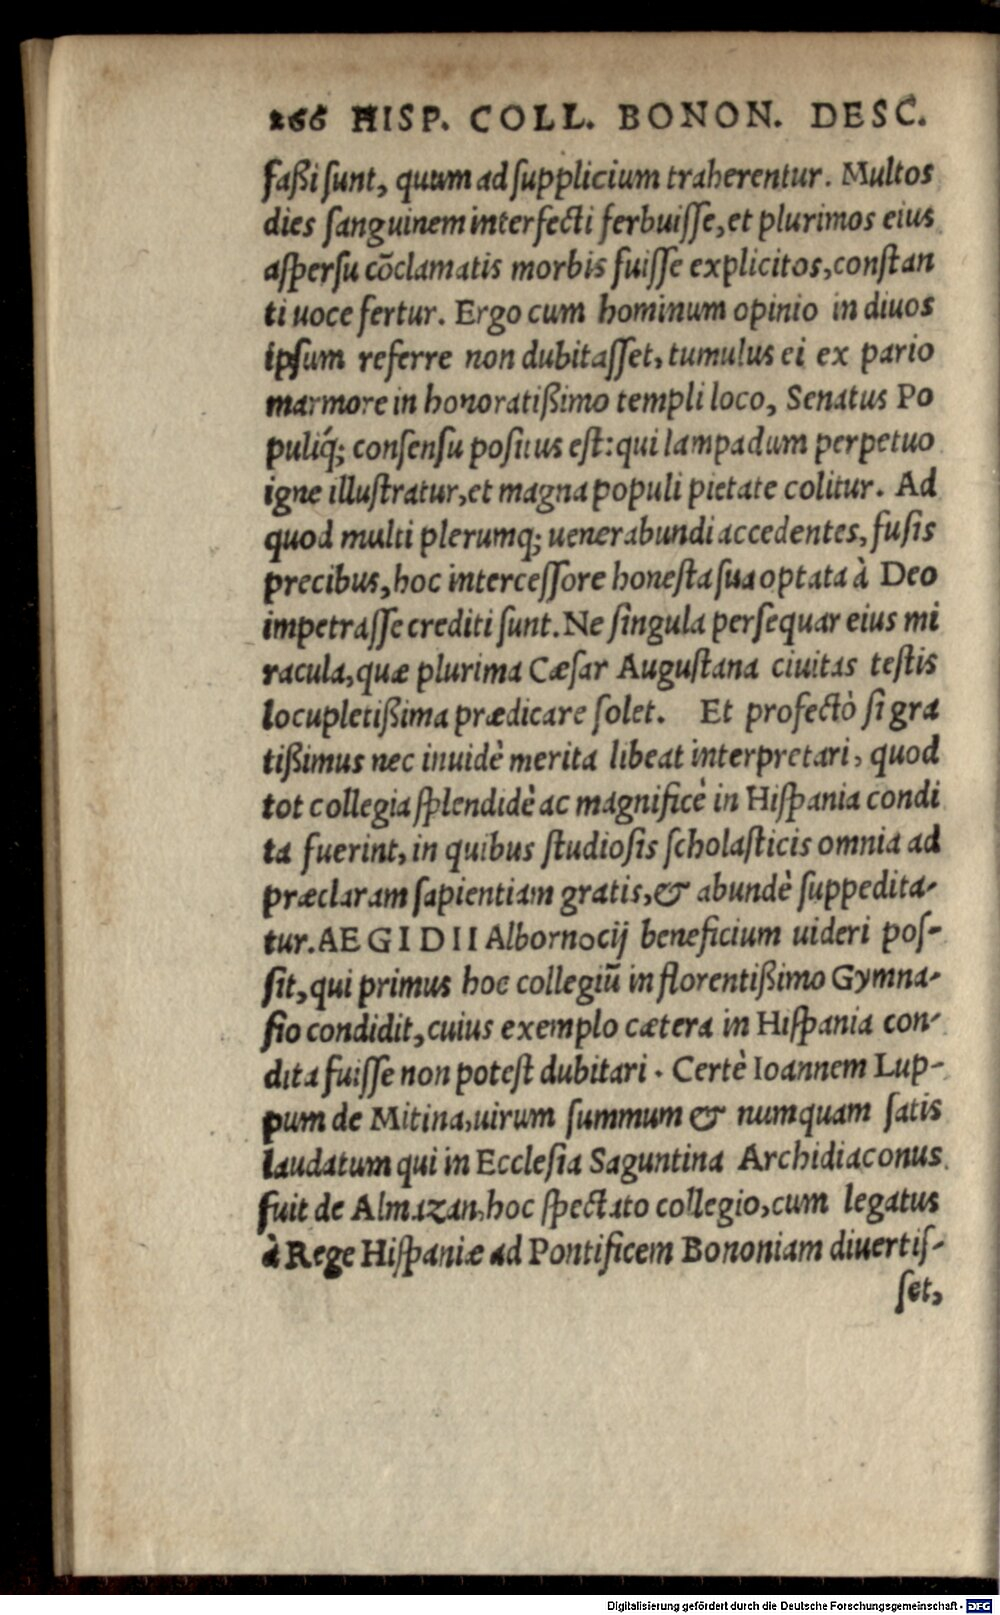 266 HISP. COLL. BONON. DESC.
faßi ſunt, quum ad ſupplicium traherentur. Multos
dies ſanguinem interfecti ferbuiſſe, et plurimos eius
aſperſu cōclamatis morbis fuiſſe explicitos, conſtan
ti uoce fertur. Ergo cum hominum opinio in diuos
ipſum referre non dubitaſſet, tumulus ei ex pario
marmore in honoratißimo templi loco, Senatus Po
puliq́; conſenſu poſitus eſt: qui lampadum perpetuo
igne illuſtratur, et magna populi pietate colitur. Ad
quod multi plerumq; uenerabundi accedentes, fuſis
precibus, hoc interceſſore honeſta ſua optata à Deo
impetraſſe crediti ſunt. Ne ſingula perſequar eius mi
racula, quæ plurima Cæſar Auguſtana ciuitas teſtis
locupletißima prædicare ſolet. Et profectò ſi gra
tißimus nec inuidè merita libeat interpretari, quod
tot collegia ſplendidè ac magnificè in Hiſpania condi
ta fuerint, in quibus ſtudioſis ſcholaſticis omnia ad
præclaram ſapientiam gratis, & abundè ſuppedita-
tur. AEGIDII Albornocij beneficium uideri poſ-
ſit, qui primus hoc collegiū in florentißimo Gymna-
ſio condidit, cuius exemplo cætera in Hiſpania con-
dita fuiſſe non poteſt dubitari. Certè Ioannem Lup-
pum de Mitina, uirum ſummum & numquam ſatis
laudatum qui in Eccleſia Saguntina Archidiaconus
fuit de Almazan, hoc ſpectato collegio, cum legatus
à Rege Hiſpaniæ ad Pontificem Bononiam diuertiſ-
ſet,
Digitalisierung gefördert durch die Deutsche Forschungsgemeinschaft - DFG